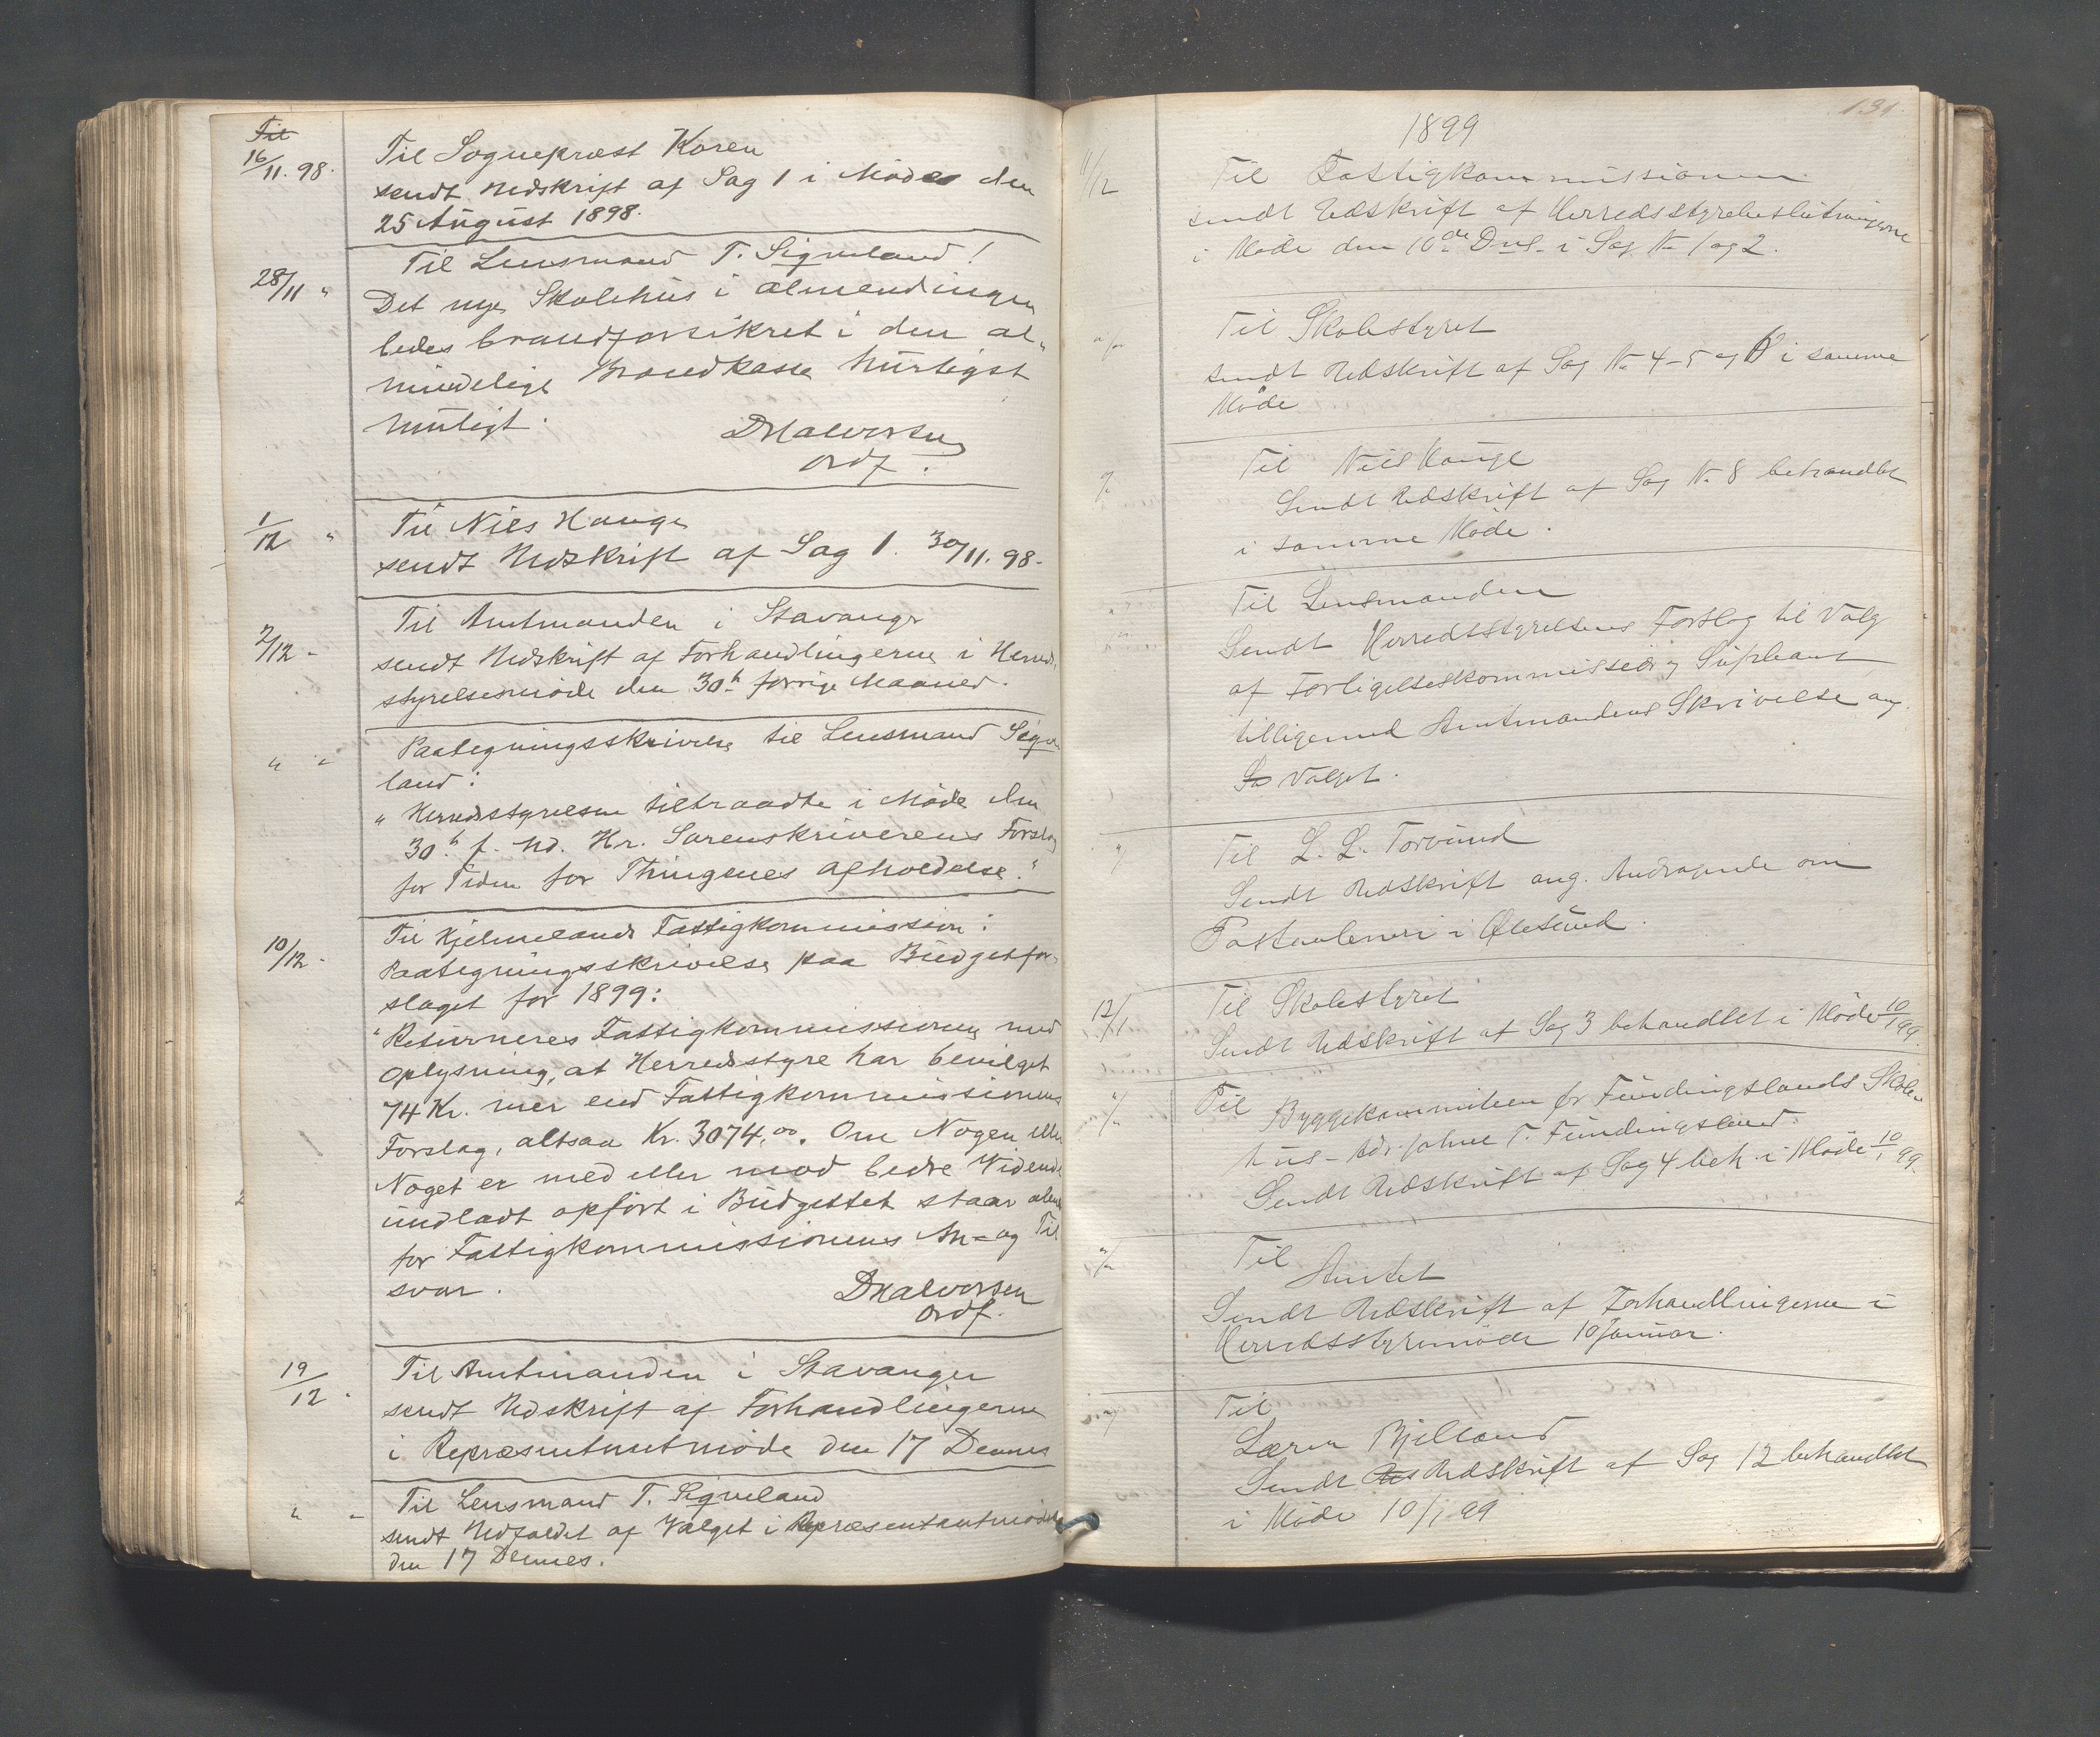 Til
16/11. 98. Til Sognepræst Koren
sendt Udskrift af Sag 1 i Mødes den
25 August 1898.
28/11 " Til Lensmand T. Sigveland!
Det nye Skolehus i almendingen
bedes brandforsikret i den al-
mindelige Brandkasse hurtigst
muligt.
DHalvorsen
Ordf.
1/12 " Til Niels Hauge
sendt Udskrift af Sag 1. 30/11. 98-
2/12 - Til Amtmanden i Stavanger
sendt Udskrift af Forhandlingerne i Herreds-
styrelsemøde den 30te forrige Maaned.
" " Paategningsskrivelse til Lensmand Sigve-
land:
"Herredsstyrelsen tiltraadte i Møde den
30te f. Md. Hr. Sorenskriverens Forslag
for Tiden for Thingenes afholdelse."
10/12 - Til Hjelmelands Fattigkommission:
Paategningsskrivelse paa Budgetfor-
slaget for 1899:
"Returneres Fattigkommissionen med
Oplysning, at Herredsstyre har bevilget
74 Kr. mer end Fattigkommissionens
Forslag, altsaa Kr. 3074,00. Om Nogen eller
Noget er med eller mod bedre Vidende
undladt opført i Budgettet staar alene
for Fattigkommissionens An- og Til
svar.
DHalvorsen
Ordf.
19/12 - Til Amtmanden i Stavanger
sendt Udskrift af Forhandlingerne
i Repræsentantmøde den 17 Dennes
" - Til Lensmand T. Sigveland
sendt Udfaldet af Valget i Repræsentantmøde
den 17 Dennes.
131
1899
11/12 Til Fattigkommissionen
sendt Udskrift af Herredsstyrebeslutningerne
i Møde den 10de Ds. i Sag No 1 og 2.
Til Skolestyret
sendt Udskrift af Sag No 4-5 og 6 i samme
Møde
Til Niels Hauge
Sendt Udskrift af Sag No 8 behandlet
i samme Møde.
Til Lensmanden
Sendt Herredsstyrelsens Forslag til Valg
af Forligelseskommissær og Supleant
tilligemed Amtmandens Skrivelse ang.
Valget.
Til L. L. Torvund
Sendt Udskrift ang. Andragende om
Postaabneri i Ølesund.
12/1 Til Skolestyret
Sendt Udskrift af Sag 3 behandlet i Møde 10/1 99.
Til Byggekomiteen for Fundingslands Skole-
hus - Adr. Johne T. Fundingsland.
Sendt Udskrift af Sag 4 beh. i Møde 10/1 99.
Til
Amtet
Sendt Udskrift af Forhandlingerne i
Herredsstyremøde 10 Januar.
Til
Lærer Bjelland
Sendt Udskrift af Sag 12 behandlet
i Møde 10/1 99